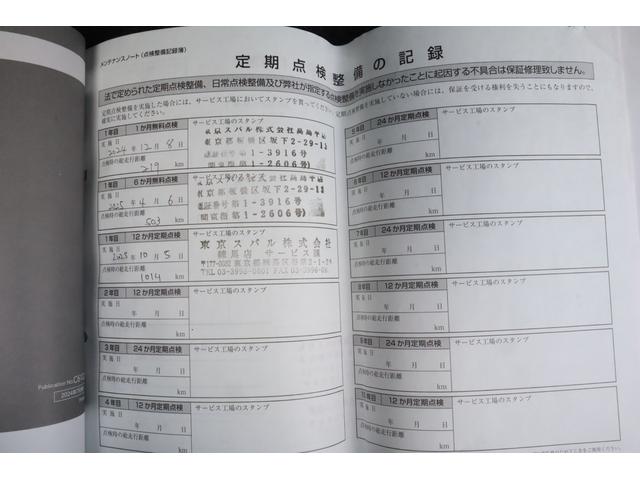 メンテナンスノート(点検整備記録簿)
定期点検整備の記録
法で定められた定期点検整備、日常点検整備及び弊社が指定する点検整備を実施しなかったことに起因する不具合は保証修理致しません。
定期点検整備を実施した場合には、サービス工場においてスタンプを買ってください。
確実に実施してください。
実施していない場合には、保証を受ける権利を失うことにもなりますので、
1年目 1か月無料点検
サービス工場のスタンプ
実施日
2024年 12月 8日
点検時の総走行距離
219 km
東京スバル株式会社
東京都板橋区坂下2-29-12
認証番号第1-3916号
関東指第1-2606号)
1年目 6か月無料点検
サービス工場のスタンプ
実施日
2025年 4月 6日
点検時の総走行距離
503 km
東京都板橋区坂下2-29-12
認証番号第1-3916号
関東指第1-2606号)
1年目 12か月定期点検
サービス工場のスタンプ
実施日
2025年 10月 5日
点検時の総走行距離
1014 km
東京スバル株式会社
練馬店 サービス課
2年目 12か月定期点検
サービス工場のスタンプ
実施日
年 月 日
点検時の総走行距離
km
3年目 24か月定期点検
サービス工場のスタンプ
実施日
年 月 日
点検時の総走行距離
km
4年目 12か月定期点検
サービス工場のスタンプ
実施日
年 月 日
点検時の総走行距離
km
5年目 24か月定期点検
サービス工場のスタンプ
実施日
年 月 日
点検時の総走行距離
km
6年目 12か月定期点検
サービス工場のスタンプ
実施日
年 月 日
点検時の総走行距離
km
7年目 24か月定期点検
サービス工場のスタンプ
実施日
年 月 日
点検時の総走行距離
km
8年目 12か月定期点検
サービス工場のスタンプ
実施日
年 月 日
点検時の総走行距離
km
9年目 24か月定期点検
サービス工場のスタンプ
実施日
年 月 日
点検時の総走行距離
km
11年目 12か月定期点検
サービス工場のスタンプ
実施日
年 月 日
点検時の総走行距離
km
Publication No.